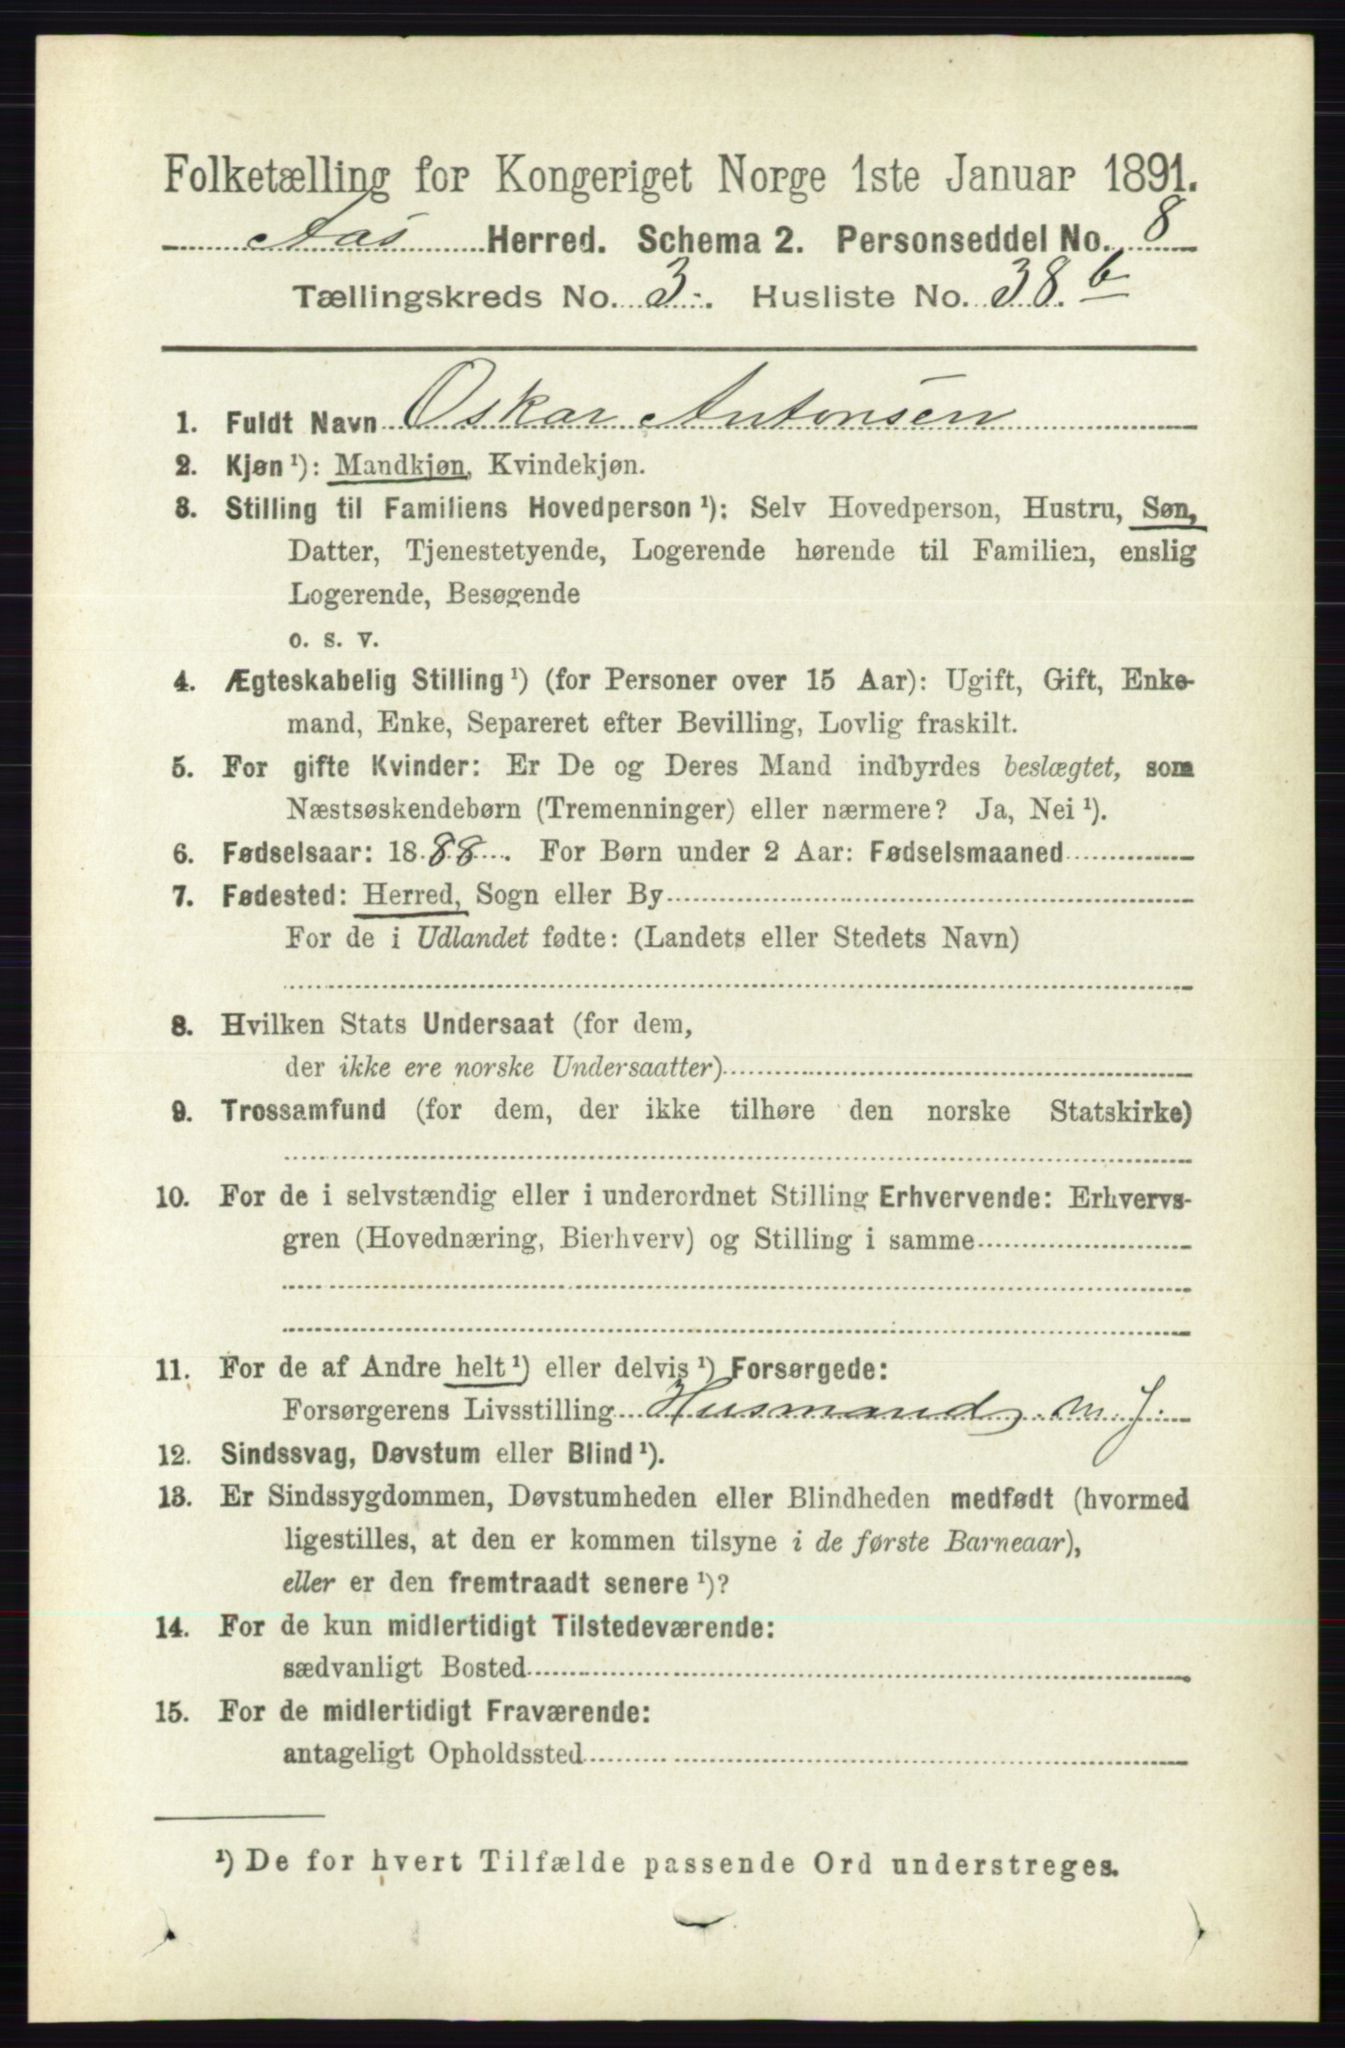 Folketælling for Kongeriget Norge 1ste Januar 1891.
Aas Herred. Schema 2. Personseddel No. 8
Tællingskreds No. 3. Husliste No. 38 b
1. Fuldt Navn Oskar Antonsen
2. Kjøn ¹): Mandkjøn, Kvindekjøn.
3. Stilling til Familiens Hovedperson ¹): Selv Hovedperson, Hustru, Søn,
Datter, Tjenestetyende, Logerende hørende til Familien, enslig
Logerende, Besøgende
o. s. v.
4. Ægteskabelig Stilling ¹) (for Personer over 15 Aar): Ugift, Gift, Enke-
mand, Enke, Separeret efter Bevilling, Lovlig fraskilt.
5. For gifte Kvinder: Er De og Deres Mand indbyrdes beslægtet, som
Næstsøskendebørn (Tremenninger) eller nærmere? Ja, Nei ¹).
6. Fødselsaar: 1888. For Børn under 2 Aar: Fødselsmaaned
7. Fødested: Herred, Sogn eller By
For de i Udlandet fødte: (Landets eller Stedets Navn)
8. Hvilken Stats Undersaat (for dem,
der ikke ere norske Undersaatter)
9. Trossamfund (for dem, der ikke tilhøre den norske Statskirke)
10. For de i selvstændig eller i underordnet Stilling Erhvervende: Erhvervs-
gren (Hovednæring, Bierhverv) og Stilling i samme
11. For de af Andre helt ¹) eller delvis ¹) Forsørgede:
Forsørgerens Livsstilling Husmand m. J.
12. Sindssvag, Døvstum eller Blind ¹).
13. Er Sindssygdommen, Døvstumheden eller Blindheden medfødt (hvormed
ligestilles, at den er kommen tilsyne i de første Barneaar),
eller er den fremtraadt senere ¹)?
14. For de kun midlertidigt Tilstedeværende:
sædvanligt Bosted
15. For de midlertidigt Fraværende:
antageligt Opholdssted
¹) De for hvert Tilfælde passende Ord understreges.